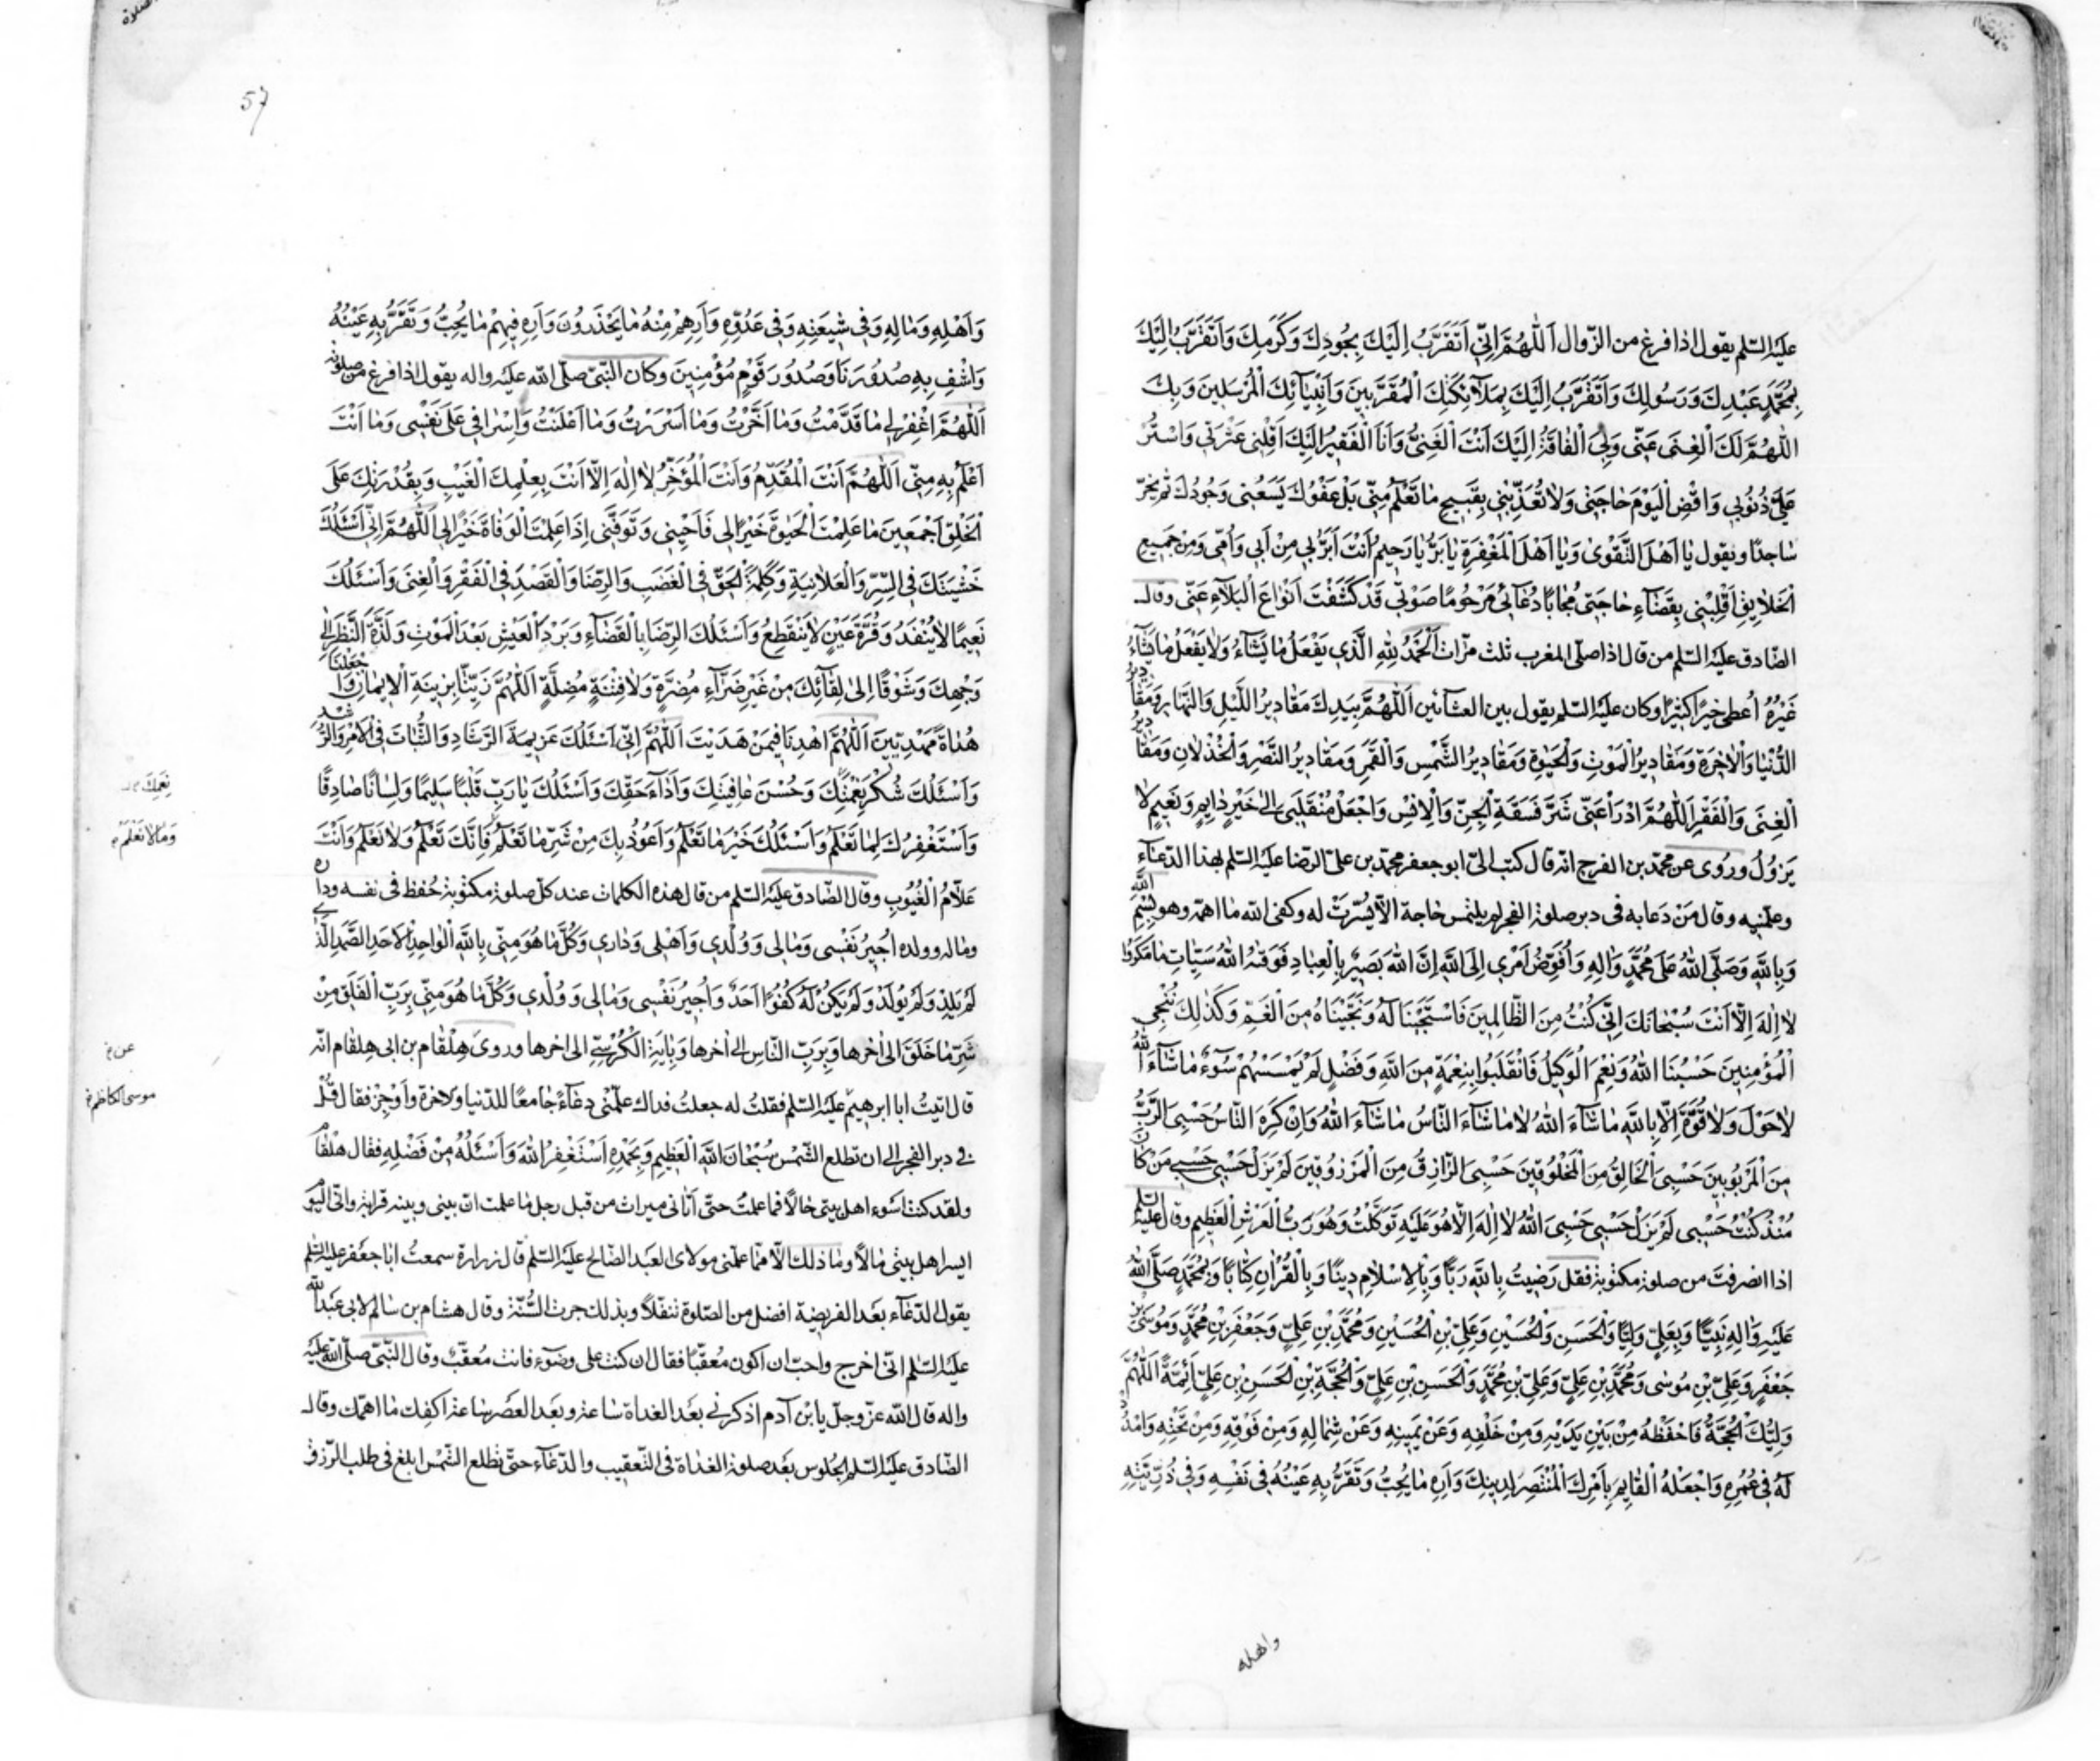 عليه السّلم يقول اذا فرغ من الزّوال اَللّهُمَّ اِنّي اَتَقَرَّبُ اِلَيْكَ بِجُودِكَ وَكَرَمِكَ وَاَتَقَرَّبُ اِلَيْكَ
بِمُحَمَّدٍ عَبْدِكَ وَرَسُولِكَ وَاَتَقَرَّبُ اِلَيْكَ بِمَلآئِكَتِكَ الْمُقَرَّبينَ وَاَنْبِيآئِكَ الْمُرْسَلينَ وَبِكَ
اللّهُمَّ لَكَ الْغِنى عَنّي وَلِيَ الْفاقَةُ اِلَيْكَ اَنْتَ الْغَنِيُّ وَاَنَا الْفَقيرُ اِلَيْكَ اَقِلْني عَثْرَتي وَاسْتُرْ
عَلَيَّ ذُنُوبي وَاقْضِ الْيَوْمَ حاجَتي وَلا تُعَذِّبْني بِقَبيحِ ما تَعْلَمُ مِنّي بَلْ عَفْوُكَ يَسَعُني وَجُودُكَ ثم يخرّ
ساجدًا ويقول يا اَهْلَ التَّقْوى وَيا اَهْلَ الْمَغْفِرَةِ يا بَرُّ يا رَحيمُ اَنْتَ اَبَرُّ بي مِنْ اَبي وَاُمّي وَمِنْ جَميعِ
الْخَلايِقِ اَقْلِبْني بِقَضآءِ حاجَتي مُجابًا دُعآئي مَرْحُومًا صَوْتي قَدْ كَشَفْتَ اَنْواعَ الْبَلآءِ عَنّي وقال
الصّادق عليه السّلم من قال اذا صلّى المغرب ثلث مرّات اَلْحَمْدُ لِلّهِ الَّذي يَفْعَلُ ما يَشآءُ وَلا يَفْعَلُ ما يَشآءُ
غَيْرُهُ اُعطى خيرًا كثيرًا وكان عليه السّلم يقول بين العشآئين اَللّهُمَّ بِيَدِكَ مَقاديرُ اللَّيْلِ وَالنَّهارِ وَمَقاديرُ
الدُّنْيا وَالْاخِرَةِ وَمَقاديرُ الْمَوْتِ وَالْحَيوةِ وَمَقاديرُ الشَّمْسِ وَالْقَمَرِ وَمَقاديرُ النَّصْرِ وَالْخُذْلانِ وَمَقاديرُ
الْغِنى وَالْفَقْرِ اَللّهُمَّ ادْرَأْ عَنّي شَرَّ فَسَقَةِ الْجِنِّ وَالْاِنْسِ وَاجْعَلْ مُنْقَلَبي اِلى خَيْرٍ دايِمٍ وَنَعيمٍ لا
يَزُولُ وروى عن محمّد بن الفرج انّه قال كتب الىّ ابو جعفر محمّد بن علىّ الرضا عليه السّلم بهذا الدّعآء
وعلّمنيه وقال مَنْ دَعا به فى دبر صلوة الفجر لم يلتمس حاجة الّا يُسّرت له وكفى الله ما اهمّه وهو بِسْمِ اللّهِ
وَبِاللّهِ وَصَلَّى اللّهُ عَلى مُحَمَّدٍ وَالِهِ وَاُفَوِّضُ اَمْري اِلَى اللّهِ اِنَّ اللّهَ بَصيرٌ بِالْعِبادِ فَوَقيهُ اللّهُ سَيِّئاتِ ما مَكَرُوا
لا اِلهَ اِلّا اَنْتَ سُبْحانَكَ اِنّي كُنْتُ مِنَ الظّالِمينَ فَاسْتَجَبْنا لَهُ وَنَجَّيْناهُ مِنَ الْغَمِّ وَكَذلِكَ نُنْجِي
الْمُؤْمِنينَ حَسْبُنَا اللّهُ وَنِعْمَ الْوَكيلُ فَانْقَلَبُوا بِنِعْمَةٍ مِنَ اللّهِ وَفَضْلٍ لَمْ يَمْسَسْهُمْ سُوءٌ ما شآءَ اللّهُ
لا حَوْلَ وَلا قُوَّةَ اِلّا بِاللّهِ ما شآءَ اللّهُ لا ما شآءَ النّاسُ ما شآءَ اللّهُ وَاِنْ كَرِهَ النّاسُ حَسْبِيَ الرَّبُّ
مِنَ الْمَرْبُوبينَ حَسْبِيَ الْخالِقُ مِنَ الْمَخْلُوقينَ حَسْبِيَ الرّازِقُ مِنَ الْمَرْزُوقينَ لَمْ يَزَلْ حَسْبي حَسْبي مَنْ كانَ
مُنْذُ كُنْتُ حَسْبي لَمْ يَزَلْ حَسْبي حَسْبِيَ اللّهُ لا اِلهَ اِلّا هُوَ عَلَيْهِ تَوَكَّلْتُ وَهُوَ رَبُّ الْعَرْشِ الْعَظيمِ وقال عليه السّلم
اذا انصرفتَ من صلوة مكتوبة فقل رَضيتُ بِاللّهِ رَبًّا وَبِالْاِسْلامِ دينًا وَبِالْقُرْانِ كِتابًا وَبِمُحَمَّدٍ صَلَّى اللّهُ
عَلَيْهِ وَالِهِ نَبِيًّا وَبِعَلِيٍّ وَلِيًّا وَالْحَسَنِ وَالْحُسَيْنِ وَعَلِيِّ بْنِ الْحُسَيْنِ وَمُحَمَّدِ بْنِ عَلِيٍّ وَجَعْفَرِ بْنِ مُحَمَّدٍ وَمُوسَى بْنِ
جَعْفَرٍ وَعَلِيِّ بْنِ مُوسى وَمُحَمَّدِ بْنِ عَلِيٍّ وَعَلِيِّ بْنِ مُحَمَّدٍ وَالْحَسَنِ بْنِ عَلِيٍّ وَالْحُجَّةِ بْنِ الْحَسَنِ بْنِ عَلِيٍّ اَئِمَّةً اَللّهُمَّ
وَلِيُّكَ الْحُجَّةُ فَاحْفَظْهُ مِنْ بَيْنِ يَدَيْهِ وَمِنْ خَلْفِهِ وَعَنْ يَمينِهِ وَعَنْ شِمالِهِ وَمِنْ فَوْقِهِ وَمِنْ تَحْتِهِ وَامْدُدْ
لَهُ في عُمُرِهِ وَاجْعَلْهُ الْقايِمَ بِاَمْرِكَ الْمُنْتَصِرَ لِدينِكَ وَاَرِهِ ما يُحِبُّ وَتَقَرُّ بِهِ عَيْنُهُ في نَفْسِهِ وَفي ذُرِّيَّتِهِ
واهله
57
وَاَهْلِهِ وَمالِهِ وَفي شيعَتِهِ وَفي عَدُوِّهِ وَاَرِهِمْ مِنْهُ ما يَحْذَرُونَ وَاَرِهِ فيهِمْ ما يُحِبُّ وَتَقَرُّ بِهِ عَيْنُهُ
وَاشْفِ بِهِ صُدُورَنا وَصُدُورَ قَوْمٍ مُؤْمِنينَ وكان النّبىّ صلّى الله عليه واله يقول اذا فرغ من صلوته
اَللّهُمَّ اغْفِرْ لي ما قَدَّمْتُ وَما اَخَّرْتُ وَما اَسْرَرْتُ وَما اَعْلَنْتُ وَاِسْرافي عَلى نَفْسي وَما اَنْتَ
اَعْلَمُ بِهِ مِنّي اَللّهُمَّ اَنْتَ الْمُقَدِّمُ وَاَنْتَ الْمُؤَخِّرُ لا اِلهَ اِلّا اَنْتَ بِعِلْمِكَ الْغَيْبِ وَبِقُدْرَتِكَ عَلَى
الْخَلْقِ اَجْمَعينَ ما عَلِمْتَ الْحَيوةَ خَيْرًا لي فَاَحْيِني وَتَوَفَّني اِذا عَلِمْتَ الْوَفاةَ خَيْرًا لي اَللّهُمَّ اِنّي اَسْئَلُكَ
خَشْيَتَكَ فِي السِّرِّ وَالْعَلانِيَةِ وَكَلِمَةَ الْحَقِّ فِي الْغَضَبِ وَالرِّضا وَالْقَصْدَ فِي الْفَقْرِ وَالْغِنى وَاَسْئَلُكَ
نَعيمًا لا يَنْفَدُ وَقُرَّةَ عَيْنٍ لا يَنْقَطِعُ وَاَسْئَلُكَ الرِّضا بِالْقَضآءِ وَبَرْدَ الْعَيْشِ بَعْدَ الْمَوْتِ وَلَذَّةَ النَّظَرِ اِلى
وَجْهِكَ وَشَوْقًا اِلى لِقآئِكَ مِنْ غَيْرِ ضَرّآءِ مُضِرَّةٍ وَلا فِتْنَةٍ مُضِلَّةٍ اَللّهُمَّ زَيِّنّا بِزينَةِ الْايمانِ وَاجْعَلْنا
هُداةً مَهْدِيّينَ اَللّهُمَّ اهْدِنا فيمَنْ هَدَيْتَ اَللّهُمَّ اِنّي اَسْئَلُكَ عَزيمَةَ الرَّشادِ وَالثَّباتَ فِي الْاَمْرِ وَالرُّشْدِ
وَاَسْئَلُكَ شُكْرَ نِعْمَتِكَ وَحُسْنَ عافِيَتِكَ وَاَداءَ حَقِّكَ وَاَسْئَلُكَ يا رَبِّ قَلْبًا سَليمًا وَلِسانًا صادِقًا
نِعَمِكَ
وَاَسْتَغْفِرُكَ لِما تَعْلَمُ وَاَسْئَلُكَ خَيْرَ ما تَعْلَمُ وَاَعُوذُ بِكَ مِنْ شَرِّ ما تَعْلَمُ فَاِنَّكَ تَعْلَمُ وَلا نَعْلَمُ وَاَنْتَ
وَما لا نَعْلَمُ
عَلّامُ الْغُيُوبِ وقال الصّادق عليه السّلم من قال هذه الكلمات عند كلّ صلوة مكتوبة حُفظ فى نفسه وداره
وماله وولده اُجيرُ نَفْسي وَمالي وَوُلْدي وَاَهْلي وَداري وَكُلَّ ما هُوَ مِنّي بِاللّهِ الْواحِدِ الْاَحَدِ الصَّمَدِ الَّذي
لَمْ يَلِدْ وَلَمْ يُولَدْ وَلَمْ يَكُنْ لَهُ كُفُوًا اَحَدٌ وَاُجيرُ نَفْسي وَمالي وَوُلْدي وَكُلَّ ما هُوَ مِنّي بِرَبِّ الْفَلَقِ مِنْ
شَرِّ ما خَلَقَ الى اخرها وَبِرَبِّ النّاسِ الى اخرها وَبِايَةِ الْكُرْسِيِّ الى اخرها وروى هِلْقام بن ابى هلقام انّه
عن
قال اتيت ابا ابرهيم عليه السّلم فقلتُ له جعلتُ فداك علّمنى دعآءً جامعًا للدّنيا والاخرة وَاَوْجِزْ فقال قُل
موسى الكاظم
فى دبر الفجر الى ان تطلع الشّمس سُبْحانَ اللّهِ الْعَظيمِ وَبِحَمْدِهِ اَسْتَغْفِرُ اللّهَ وَاَسْئَلُهُ مِنْ فَضْلِهِ فقال هلقام
ولقد كنت اَسْوء اهل بيتى حالًا فما علمتُ حتّى اَتانى ميراث من قبل رجل ما علمت انّ بينى وبينه قرابة وانّى اليوم
ايسر اهل بيتى مالًا وما ذلك الّا ممّا علّمنى مولاى العبد الصّالح عليه السّلم قال زرارة سمعتُ ابا جعفر عليه السّلم
يقول الدّعآء بعد الفريضة افضل من الصّلوة تنفّلًا وبذلك جرت السُّنّة وقال هشام بن سالم لابى عبد الله
عليه السّلم انّى اخرج واحبّ ان اكون مُعقّبًا فقال ان كنت على وضوء فانت مُعقّبٌ وقال النّبىّ صلّى الله عليه
واله قال الله عزّ وجلّ يا بن آدم اذكرنى بعد الغداة ساعة وبعد العصر ساعة اكفِك ما اهمّك وقال
الصّادق عليه السّلم الجلوس بعد صلوة الغداة فى التّعقيب والدّعآء حتّى تطلع الشّمس ابلغ فى طلب الرّزق